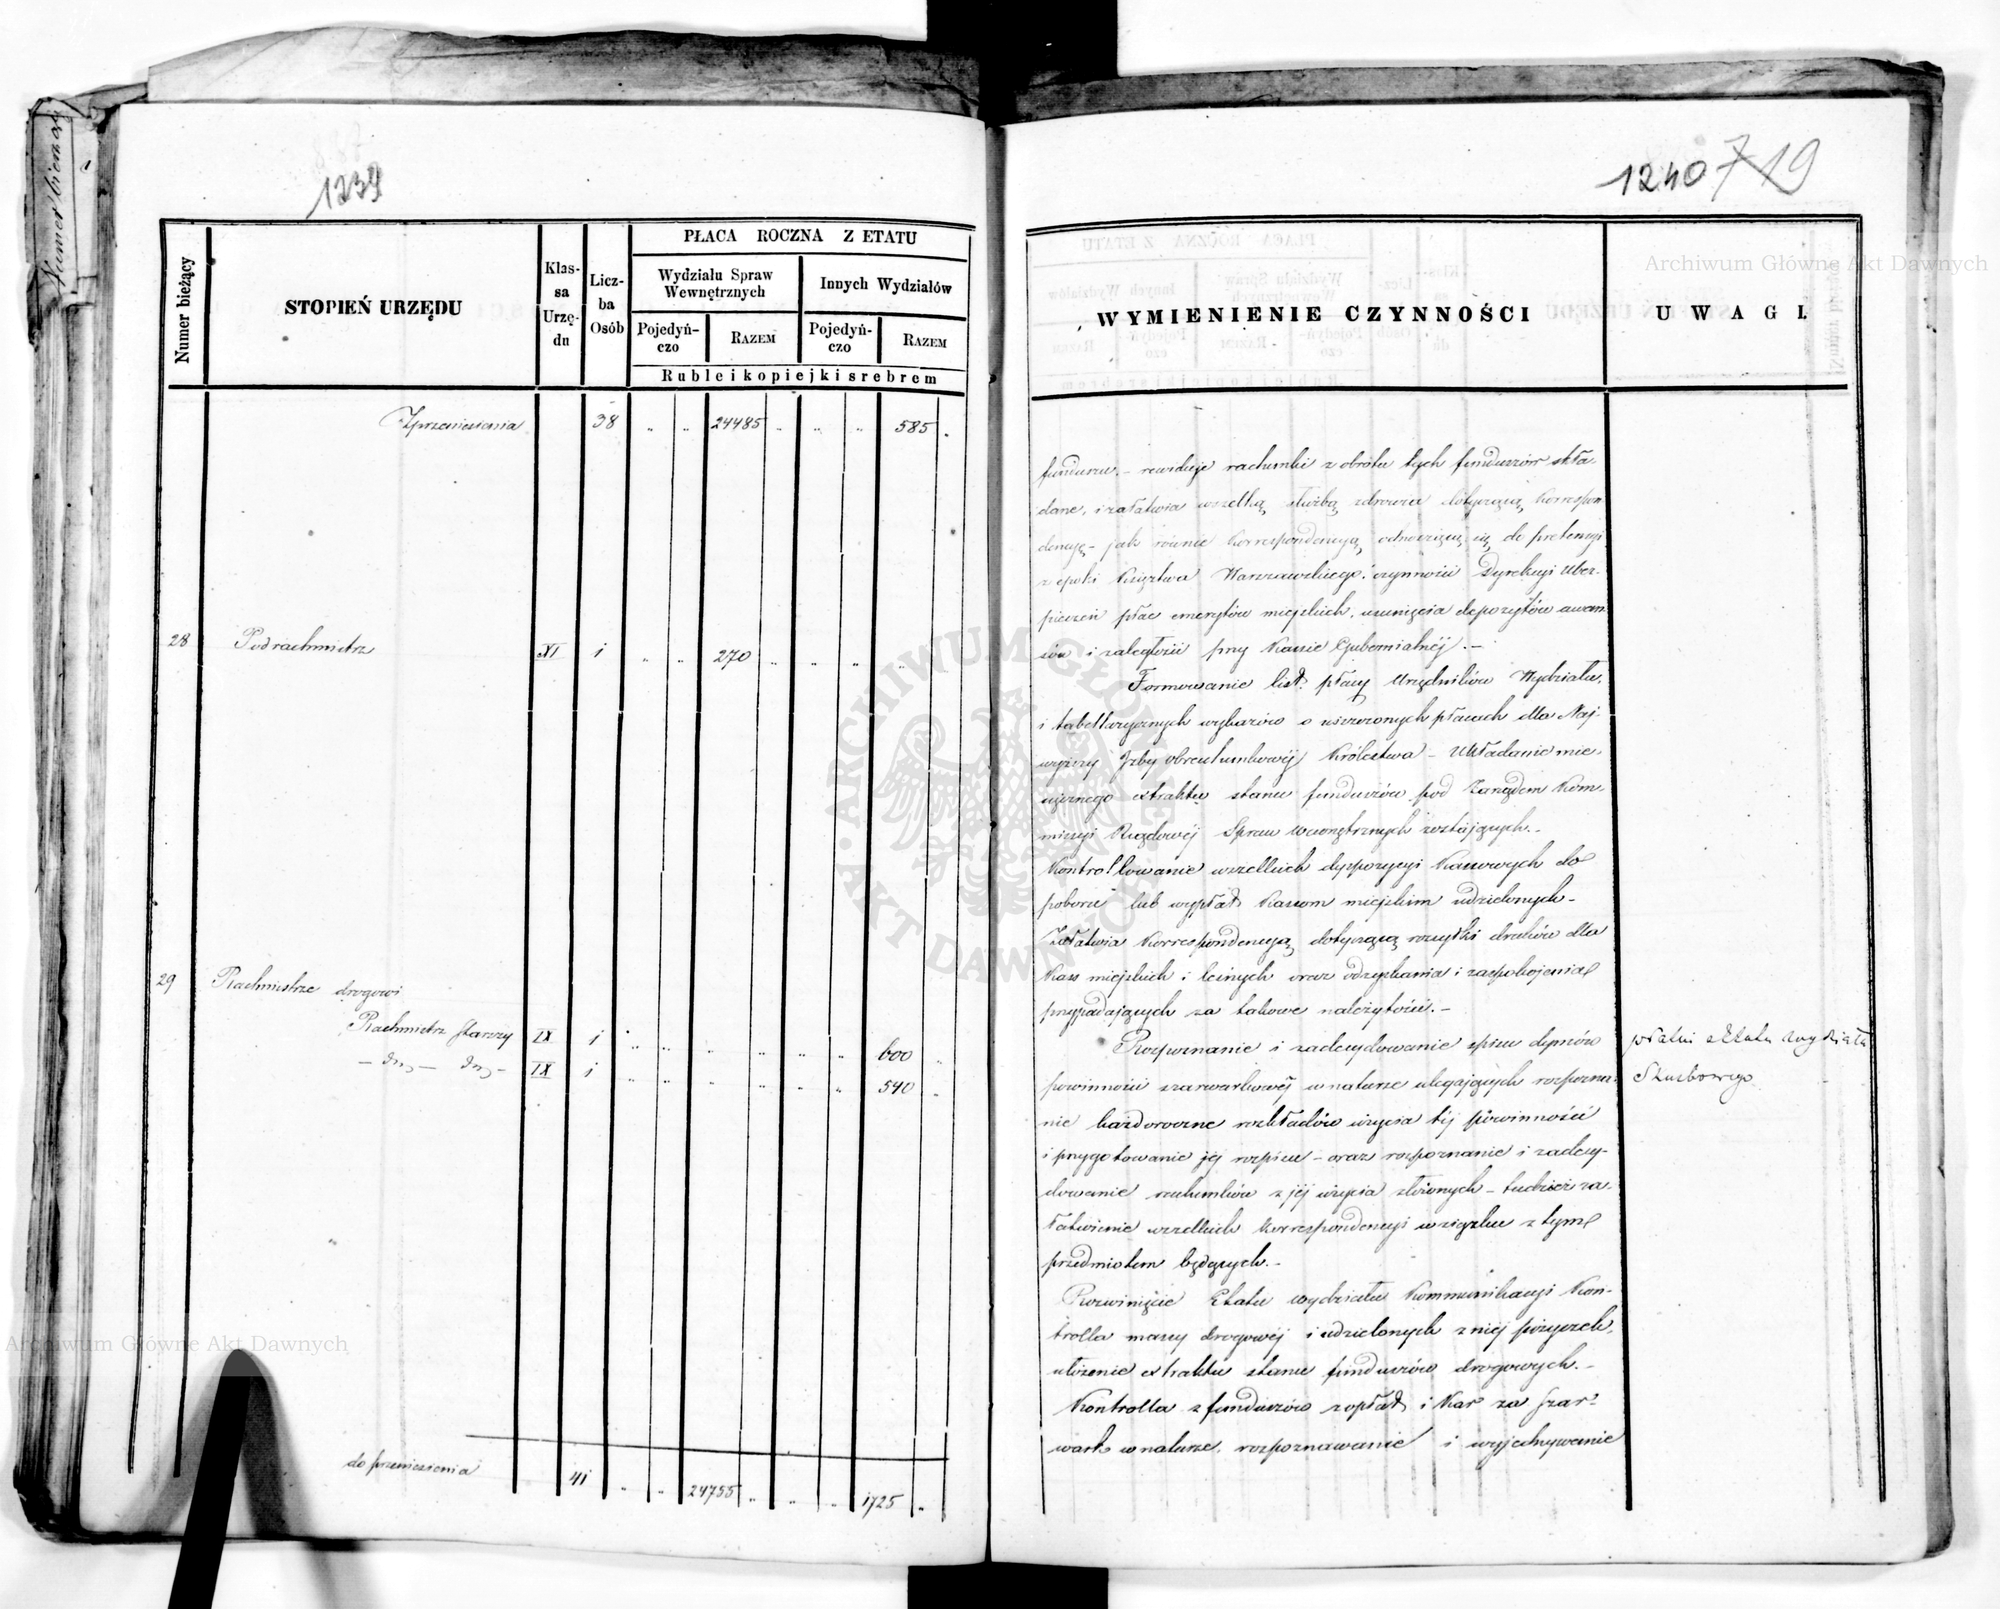 Numer bieżący
1239
Numer bieżący
STOPIEŃ URZĘDU
Klas-
sa
Urzę-
du
Licz-
ba
Osób
PŁACA ROCZNA Z ETATU
Wydziału Spraw
Wewnętrznych
Innych Wydziałów
Pojedyń-
czo
RAZEM
Pojedyń-
czo
RAZEM
Ruble i kopiejki srebrem
Z przeniesienia 38 " " 24485 " " " 585 "
28 Podrachmistrz XI 1 " " 270 " " " " "
29 Rachmistrze drogowi
Rachmistrz starszy IX 1 " " " " " " 600 "
— dto — dto — IX 1 " " " " " " 540 "
do przeniesienia 41 " " 24755 " " " 1725 "
1240 719
WYMIENIENIE CZYNNOŚCI
UWAGI.
funduszu. – rewiduje rachunki z obrotu tych funduszów skła-
dane, i załatwia wszelką służbą zdrowia dotyczącą korrespon
dencyę – jak równie korrespondencyą odnoszącą się do pretensyi
z epoki Księztwa Warszawskiego, czynności Dyrekcyi Ubez-
pieczeń płac emerytów miejskich, usunięcia depozytów awan
sów i zaległości przy Kassie Gubernialnéj. –
Formowanie list płacy Urzędników Wydziału,
i tabellarycznych wykazów o uiszczonych płacach dla Naj-
wyższej Izby obrachunkowéj Królestwa – Układanie mie-
sięcznego extraktu stanu funduszów pod Zarządem Kom-
missyi Rządowéj Spraw wewnętrznych zostających. –
Kontrollowanie wszelkich dyspozycyi Kassowych do
poboru lub wypłat Kassom miejskim udzielonych –
Załatwia korrespondencyą dotyczącą rozsyłki druków dla
Kass miejskich i leśnych oraz odzyskania i zaspokojenia
przypadających za takowe należytości. –
Rozpoznanie i zadecydowanie spisu dymów
powinności szarwarkowéj w naturze ulegających rozpozna-
nie każdoroczne rozkładów użycia téj powinności
i przygotowanie jéj rozpisu – oraz rozpoznanie i zadecy-
dowanie rachunków z jéj użycia złożonych – tudzież za-
łatwienie wszelkich korrespondencyi w związku z tym
przedmiotem będących. –
Rozwinięcie Etatu wydziału Kommunikacyi Kon-
trolla massy drogowéj i udzielonych z niéj pożyczek,
ułożenie extraktu stanu funduszów drogowych. –
Kontrolla z funduszów z opłat i Kar za szar-
wark w naturze, rozpoznawanie i wyjednywanie
płatni z Etatu wydziału
Skarbowego
Archiwum Główne Akt Dawnych
ARCHIWUM GŁÓWNE AKT DAWNYCH
Archiwum Główne Akt Dawnych